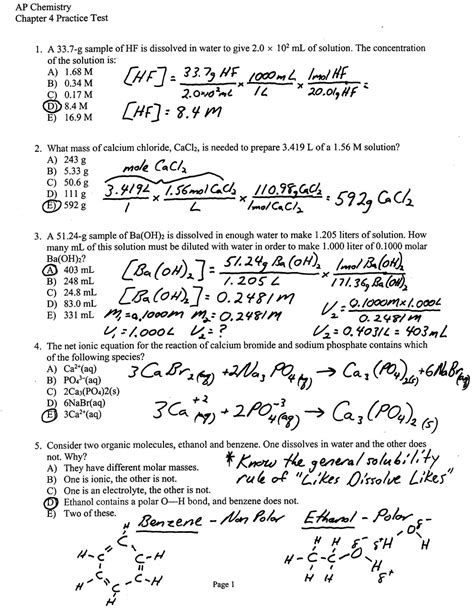 AP Chemistry
Chapter 4 Practice Test
1. A 33.7-g sample of HF is dissolved in water to give 2.0 × 10² mL of solution. The concentration
of the solution is:
A) 1.68 M
B) 0.34 M
C) 0.17 M
D) 8.4 M
E) 16.9 M
[HF] = 33.7g HF / 2.0×10² mL × 1000 mL / 1L × 1mol HF / 20.01g HF =
[HF] = 8.4 M
2. What mass of calcium chloride, CaCl₂, is needed to prepare 3.419 L of a 1.56 M solution?
A) 243 g
B) 5.33 g
C) 50.6 g
D) 111 g
E) 592 g
mole CaCl₂
3.419L / 1 × 1.56mol CaCl₂ / L × 110.98g CaCl₂ / 1mol CaCl₂ = 592g CaCl₂
3. A 51.24-g sample of Ba(OH)₂ is dissolved in enough water to make 1.205 liters of solution. How
many mL of this solution must be diluted with water in order to make 1.000 liter of 0.1000 molar
Ba(OH)₂?
A) 403 mL
B) 248 mL
C) 24.8 mL
D) 83.0 mL
E) 331 mL
[Ba(OH)₂] = 51.24g Ba(OH)₂ / 1.205 L × 1mol Ba(OH)₂ / 171.36g Ba(OH)₂
[Ba(OH)₂] = 0.2481 M
M₁ = 0.1000M M₂ = 0.2481 M
V₁ = 1.000L V₂ = ?
V₂ = 0.1000M × 1.000L / 0.2481 M
V₂ = 0.4031L = 403mL
4. The net ionic equation for the reaction of calcium bromide and sodium phosphate contains which
of the following species?
A) Ca²⁺(aq)
B) PO₄³⁻(aq)
C) 2Ca₃(PO₄)2(s)
D) 6NaBr(aq)
E) 3Ca²⁺(aq)
3CaBr₂(aq) + 2Na₃PO₄(aq) → Ca₃(PO₄)₂(s) + 6NaBr(aq)
3Ca⁺²(aq) + 2PO₄⁻³(aq) → Ca₃(PO₄)₂(s)
5. Consider two organic molecules, ethanol and benzene. One dissolves in water and the other does
not. Why?
A) They have different molar masses.
B) One is ionic, the other is not.
C) One is an electrolyte, the other is not.
D) Ethanol contains a polar O—H bond, and benzene does not.
E) Two of these.
* Know the general solubility
rule of "Likes Dissolve Likes"
Benzene - Non Polar Ethanol - Polar
H
C
H-C C-H
H-C C-H
C
H
H H δ⁺H
H-C-C-O δ⁻
H H
δ⁻ O
H H δ⁺
Page 1